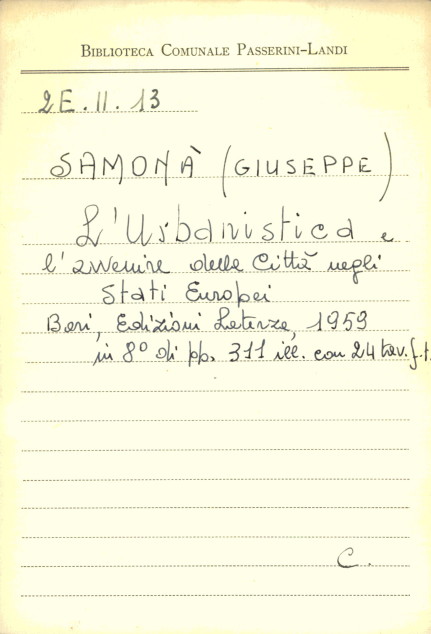 BIBLIOTECA COMUNALE PASSERINI-LANDI
2E.II.13
SAMONÀ (GIUSEPPE)
L'Urbanistica e
l'avvenire delle Città negli
Stati Europei
Bari, Edizioni Laterza, 1959
in 8° di pp. 311 ill. con 24 tav. f.t.
C.